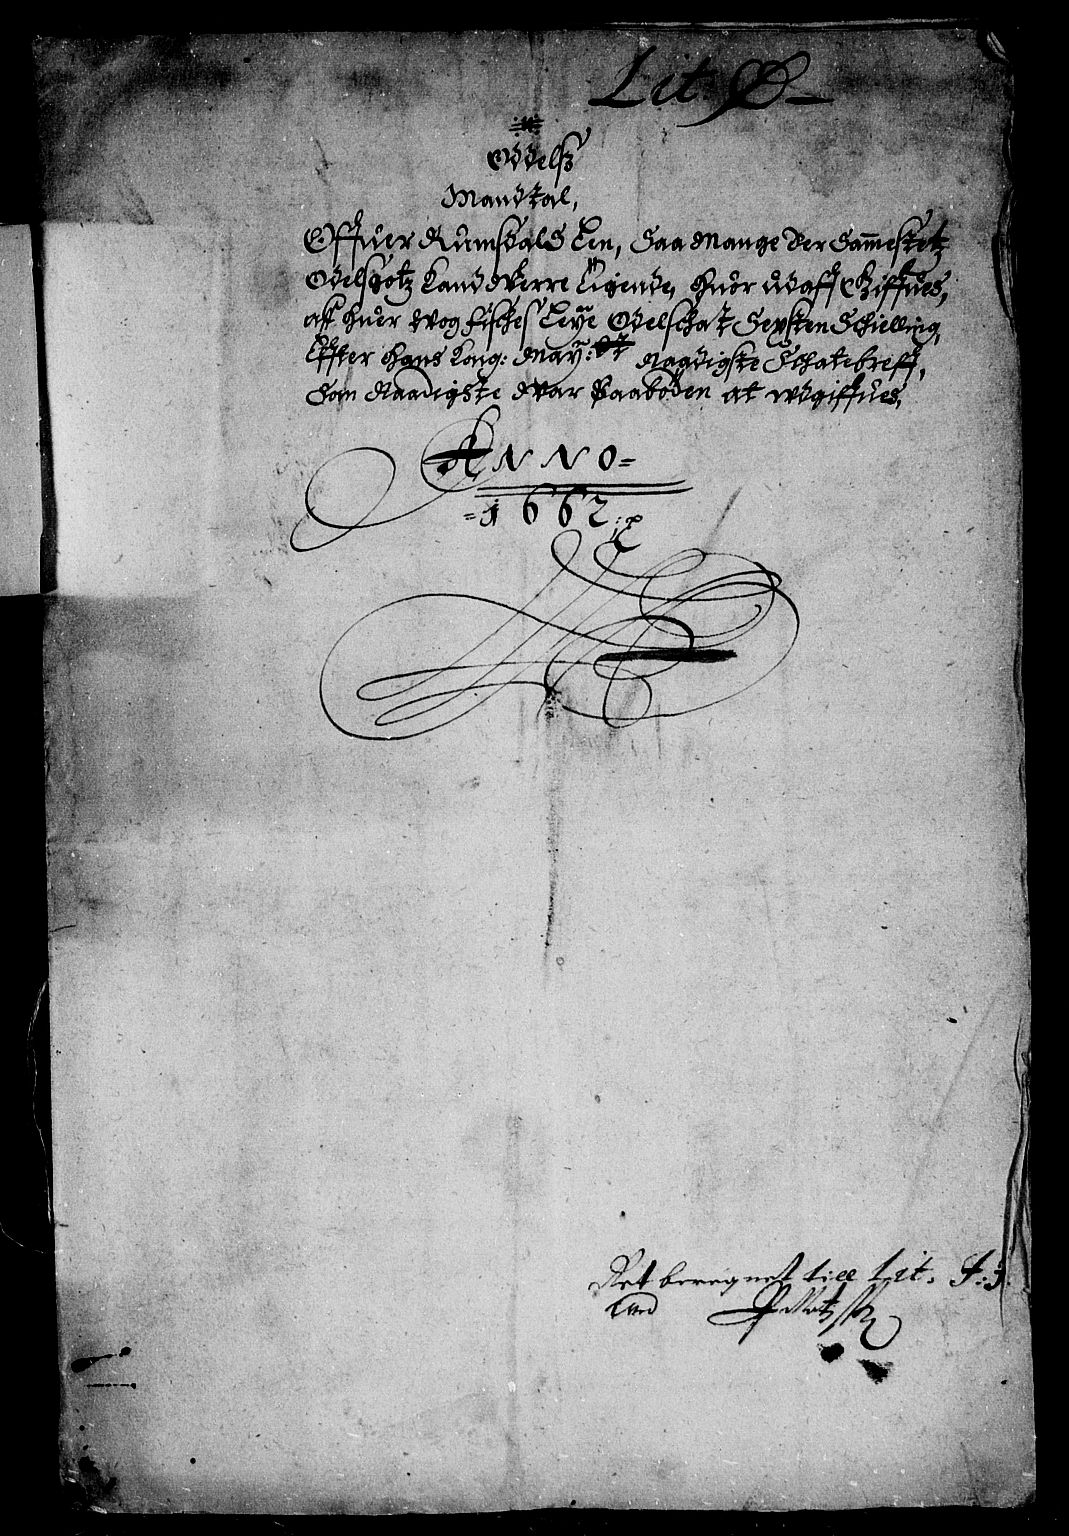 Lit. Ø
Odelsz
Mandtal,
Offuer Rumsdals Len, Saa mange der Sammestetz
Odelsgotz kand verre Ligende, huor udaff schal giffues,
aff huer Wog fisches Leye Odelschat Sexsten Schielling,
Effter hans Kong: May: Naadigste Schatebreff,
Som Naadigste var Paaböden at wdgiffues,
ANNO
1662
Ret beregnet till Lit: F:3.